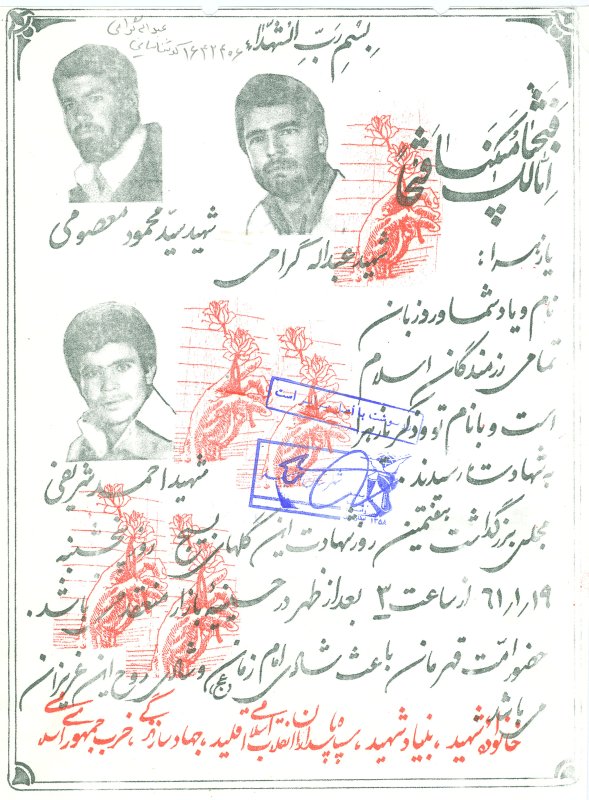 بسم رب الشهداء
عبداله گرامی
کد شناسایی ۱۶۴۲۴۰۶
اِنّا فَتَحنا لَکَ فَتحاً مُبینا
شهید سید محمود معصومی
شهید عبداله گرامی
یا زهرا:
نام و یاد شما ورد زبان
تمامی رزمندگان اسلام
است و با نام تو و ذکر یا زهرا
به شهادت رسیدند.
شهید احمد شریفی
مجلس بزرگداشت هفتمین روز شهادت این گلهای بسیج روز پنجشنبه
۶۱/۱/۱۹ از ساعت ۳ بعد از ظهر در حسینیه بازار منعقد می باشد.
حضور امت قهرمان باعث شادی امام زمان (عج) و شادی روح این عزیزان
می باشد.
خانواده شهید، بنیاد شهید، سپاه پاسداران انقلاب اسلامی اقلید، جهاد سازندگی، حزب جمهوری اسلامی
است
۱۳۵۸